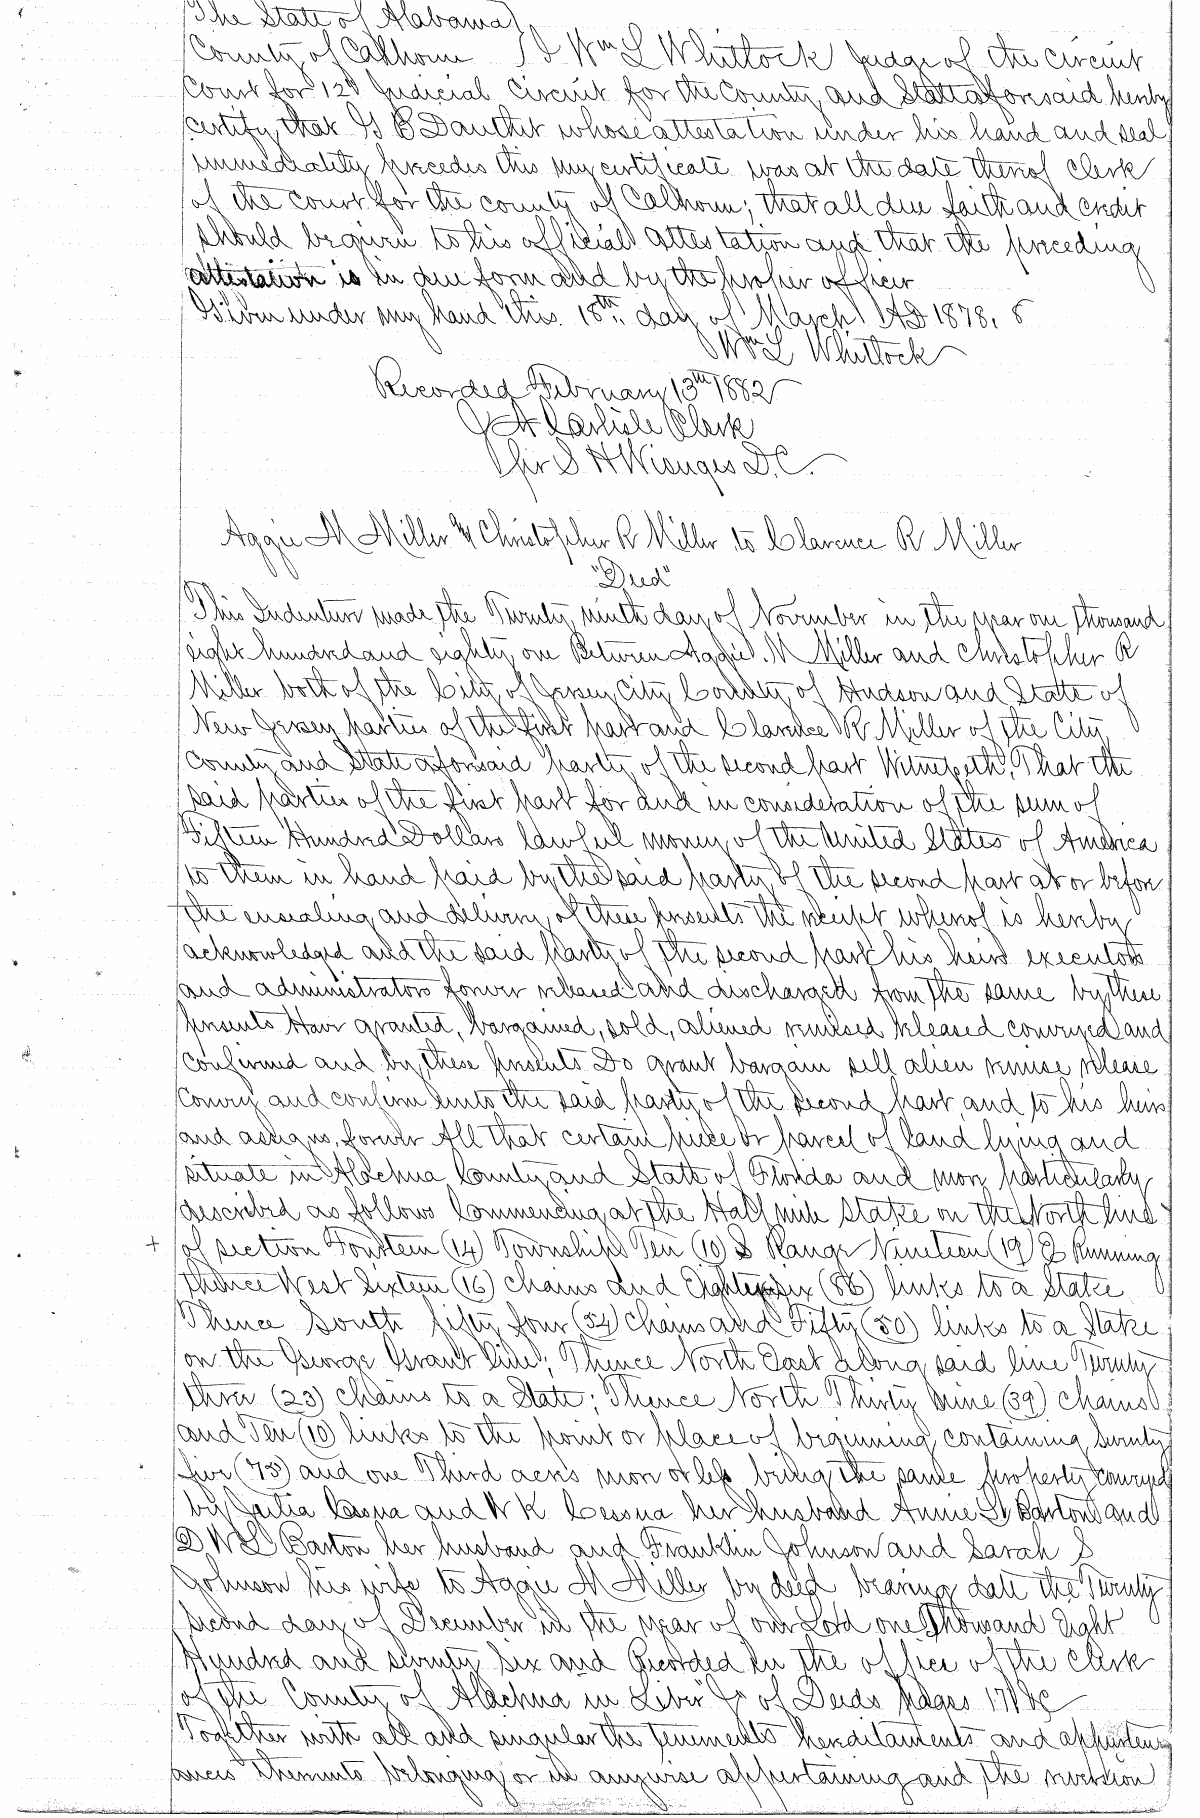 The State of Alabama
County of Calhoun } I Wm L Whitlock Judge of the Circuit
Court for 12th Judicial Circuit for the County and State aforesaid hereby
certify that G B Douthit whose attestation under his hand and seal
immediately precedes this my certificate was at the date thereof Clerk
of the court for the county of Calhoun; that all due faith and credit
should be given to his official attestation and that the preceding
attestation is in due form and by the proper officer
Given under my hand this 18th day of March AD 1878,
Wm L Whitlock
Recorded February 13th 1882
J A Carlisle Clerk
Per S H Wienges D.C.
Aggie M Miller & Christopher R Miller to Clarence R Miller
"Deed"
This Indenture made the Twenty ninth day of November in the year one thousand
eight hundred and eighty one Between Aggie M Miller and Christopher R
Miller both of the City of Jersey City County of Hudson and State of
New Jersey parties of the first part and Clarence R Miller of the City
County and State aforesaid party of the second part Witnesseth, That the
said parties of the first part for and in consideration of the sum of
Fifteen Hundred Dollars lawful money of the United States of America
to them in hand paid by the said party of the second part at or before
the ensealing and delivery of these presents the receipt whereof is hereby
acknowledged and the said party of the second part his heirs executors
and administrators forever released and discharged from the same by these
presents Have granted, bargained, sold, aliened remised released conveyed and
confirmed and by these presents Do grant bargain sell alien remise release
convey and confirm unto the said party of the second part and to his heirs
and assigns forever All that certain piece or parcel of land lying and
situate in Alachua County and State of Florida and more particularly
described as follows Commencing at the Half mile stake on the North line
of section Fourteen (14) Township Ten (10) S Range Nineteen (19) E Running
thence West Sixteen (16) chains and Eighty six (86) links to a Stake
Thence South fifty four (54) chains and Fifty (50) links to a Stake
on the George Grant line; Thence North East along said line Twenty
three (23) chains to a Stake; Thence North Thirty nine (39) chains
and Ten (10) links to the point or place of beginning containing Seventy
five (75) and one Third acres more or less being the same property conveyed
by Julia Cessna and W K Cessna her husband Annie L Barton and
D W L Barton her husband and Franklin Johnson and Sarah S
Johnson his wife to Aggie M Miller by deed bearing date the Twenty
second day of December in the year of our Lord one Thousand Eight
Hundred and seventy Six and Recorded in the office of the Clerk
of the County of Alachua in Liber of Deeds pages 171 &c
Together with all and singular the tenements hereditaments and appurten
ances thereunto belonging or in anywise appertaining and the reversion